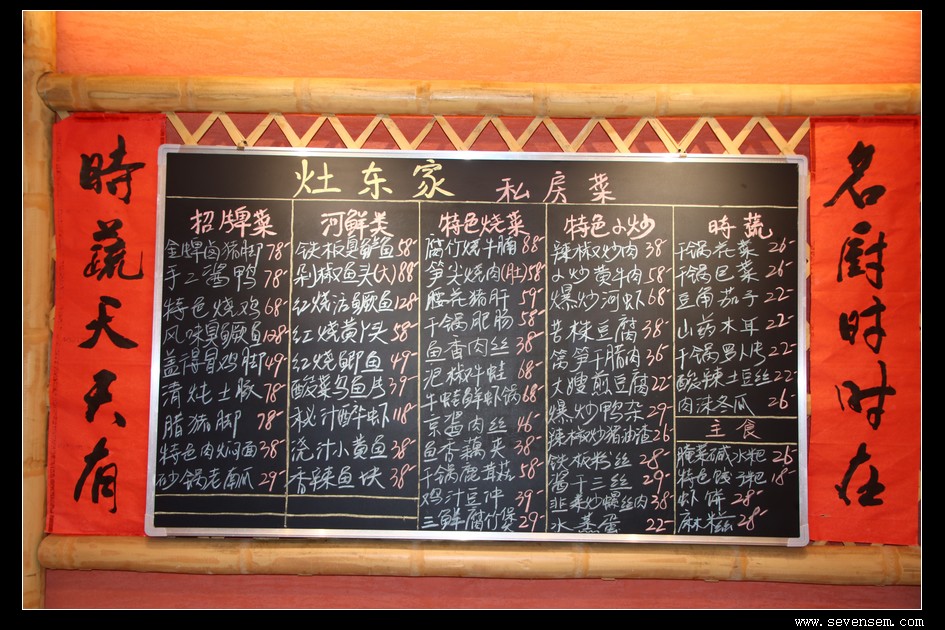 時蔬天天有
灶东家 私房菜
招牌菜
金牌卤猪脚 78-
手工酱鸭 78-
特色烧鸡 68-
风味臭鳜鱼 128-
盐焗鸡脚 49-
清炖土豚 78-
腊猪脚 78-
特色肉焖面 38-
砂锅老南瓜 29-
河鲜类
铁板臭鳜鱼 58-
剁椒鱼头(大) 88-
红烧活鳜鱼 128-
红烧黄丫头 58-
红烧鲫鱼 49-
酸菜乌鱼片 39-
秘汁醉虾 118-
浇汁小黄鱼 38-
香辣鱼块 38-
特色烧菜
腐竹烧牛腩 88-
笋尖烧肉(肚) 58-
腰花猪肝 59-
干锅肥肠 58-
鱼香肉丝 38-
泥椒牛蛙 68-
牛蛙鲜虾锅 68-
京酱肉丝 46-
鱼香藕夹 38-
干锅鹿茸菇 58-
鸡汁豆冲 39-
三鲜腐竹煲 29-
特色小炒
辣椒炒肉 38-
小炒黄牛肉 58-
爆炒河虾 68-
苦槠豆腐 38-
莴笋干腊肉 36-
大嫂煎豆腐 22-
爆炒鸭杂 29-
辣椒炒猪油渣 26-
铁板粉丝 28-
酱干三丝 29-
韭菜炒螺丝肉 38-
水蒸蛋 22-
時蔬
干锅花菜 26-
干锅包菜 26-
豆角茄子 22-
山药木耳 22-
干锅萝卜片 22-
酸辣土豆丝 22-
肉沫冬瓜 26-
主食
腌菜碱水粑 26-
特色饯子粑 18-
虾饼 28-
麻糍 28-
名厨时时在
www.sevensem.com